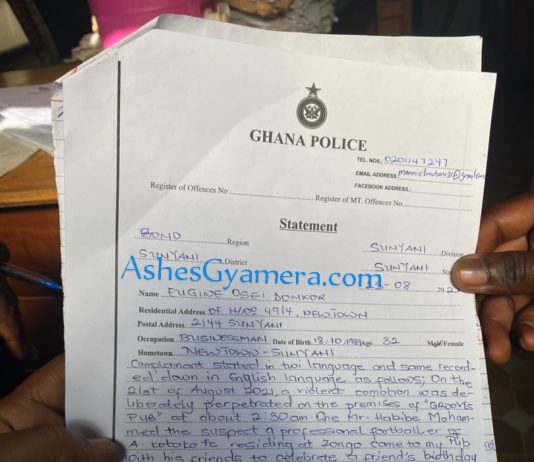 GHANA POLICE
TEL. NOS: 0201147247
EMAIL ADDRESS:
FACEBOOK ADDRESS:
Register of Offences No
Register of MT. Offences No
Statement
BONO Region
SUNYANI Division
SUNYANI District
SUNYANI
AshesGyamera.com
22-08 20
Name EUGINE OSEI DONKOR
Residential Address OF H/NO 49/4, NEWTOWN
Postal Address 2144 SUNYANI
Occupation BUSINESSMAN Date of Birth 18.10.1989 Age 32 Male/Female
Hometown NEWTOWN - SUNYANI
Complainant started in twi language and same record-
ed down in English language as follows; On the
21st of August 2021, a violent comohon was de-
liberately perpetrated on the premises of "GROOVIS
PUB" at about 2:30am. One Mr. Habibe Moham-
med the suspect a professional footballer of
A. kotoko fc residing at Zongo came to my Pub
with his friends to celebrate a friend's birthday